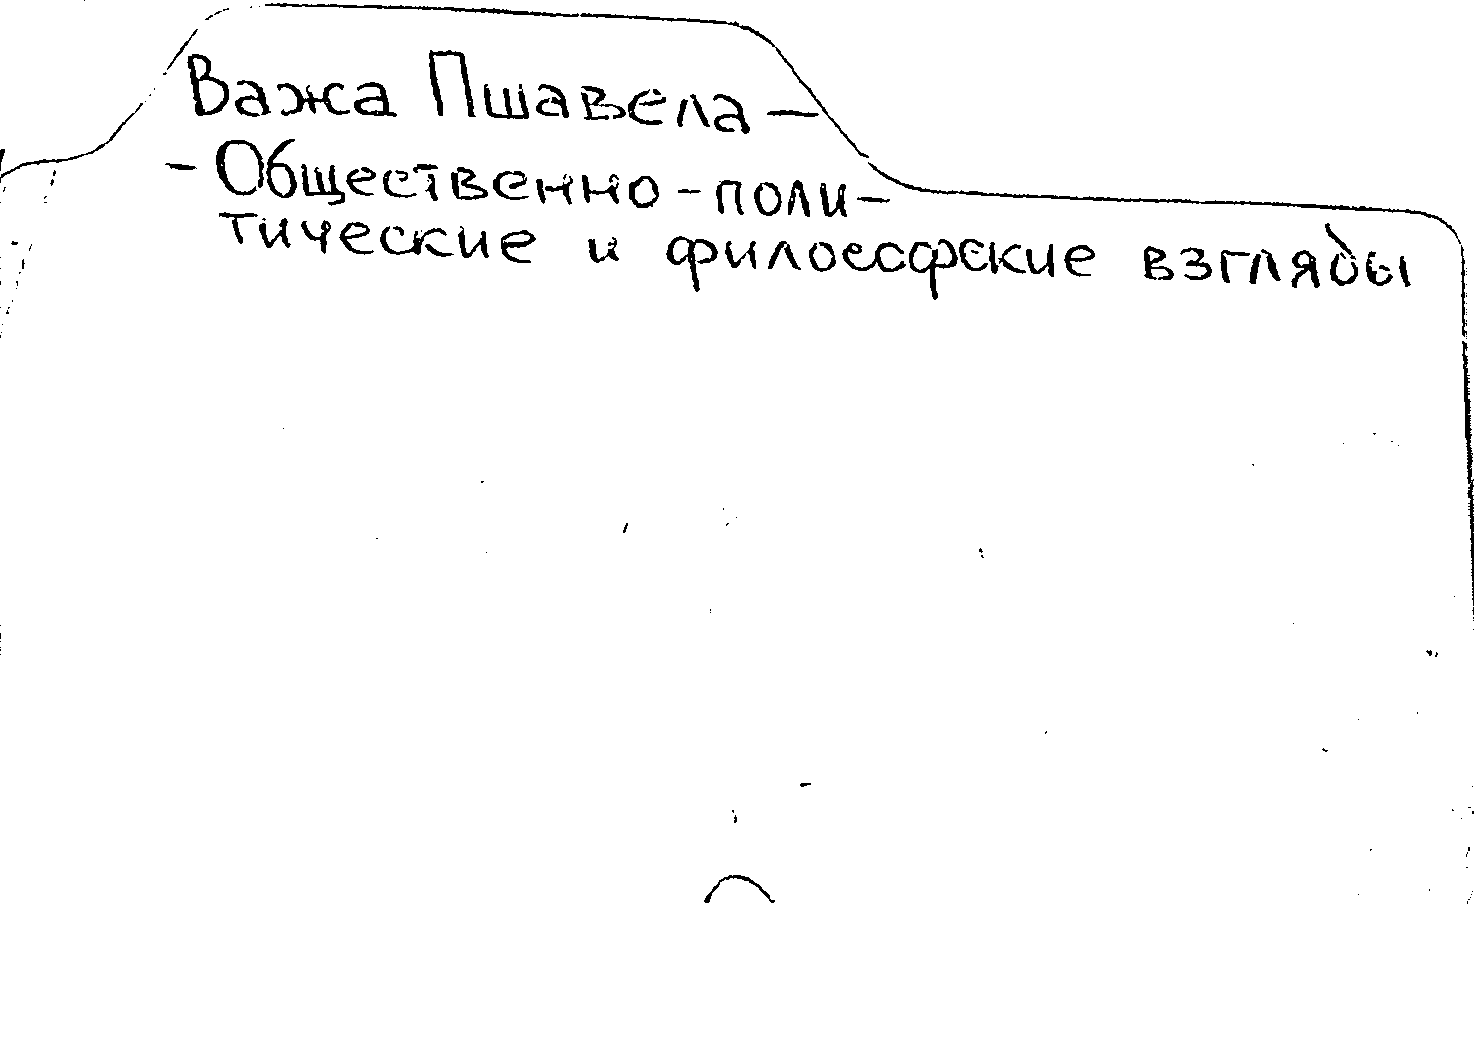 Важа Пшавела —
- Общественно - поли -
тические и философские взгляды